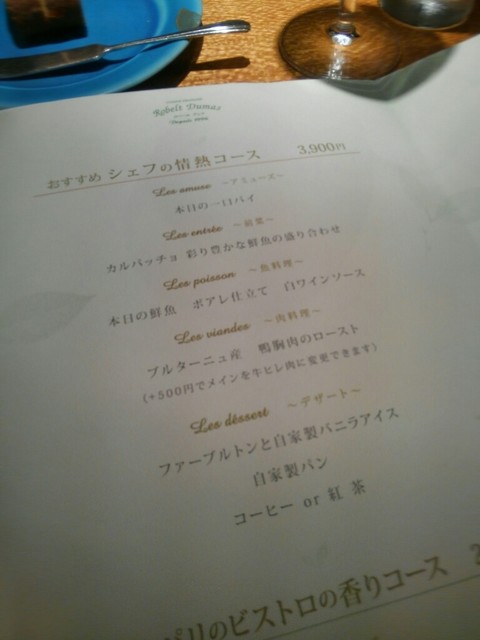 Robelt Dumas
おすすめ シェフの情熱コース 3,900円
Les amuse ～アミューズ～
本日の一口パイ
Les entrée ～前菜～
カルパッチョ 彩り豊かな鮮魚の盛り合わせ
Les poisson ～魚料理～
本日の鮮魚 ポアレ仕立て 白ワインソース
Les viandes ～肉料理～
ブルターニュ産 鴨胸肉のロースト
(+500円でメインを牛ヒレ肉に変更できます)
Les déssert ～デザート～
ファーブルトンと自家製バニラアイス
自家製パン
コーヒー or 紅茶
パリのビストロの香りコース